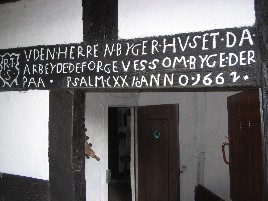 UDEN HERREN BYGER HUSET DA
ARBEYDE DE FORGEVESS OM BYGE DER
PAA · PSALM CXX ANNO · 1662 ·